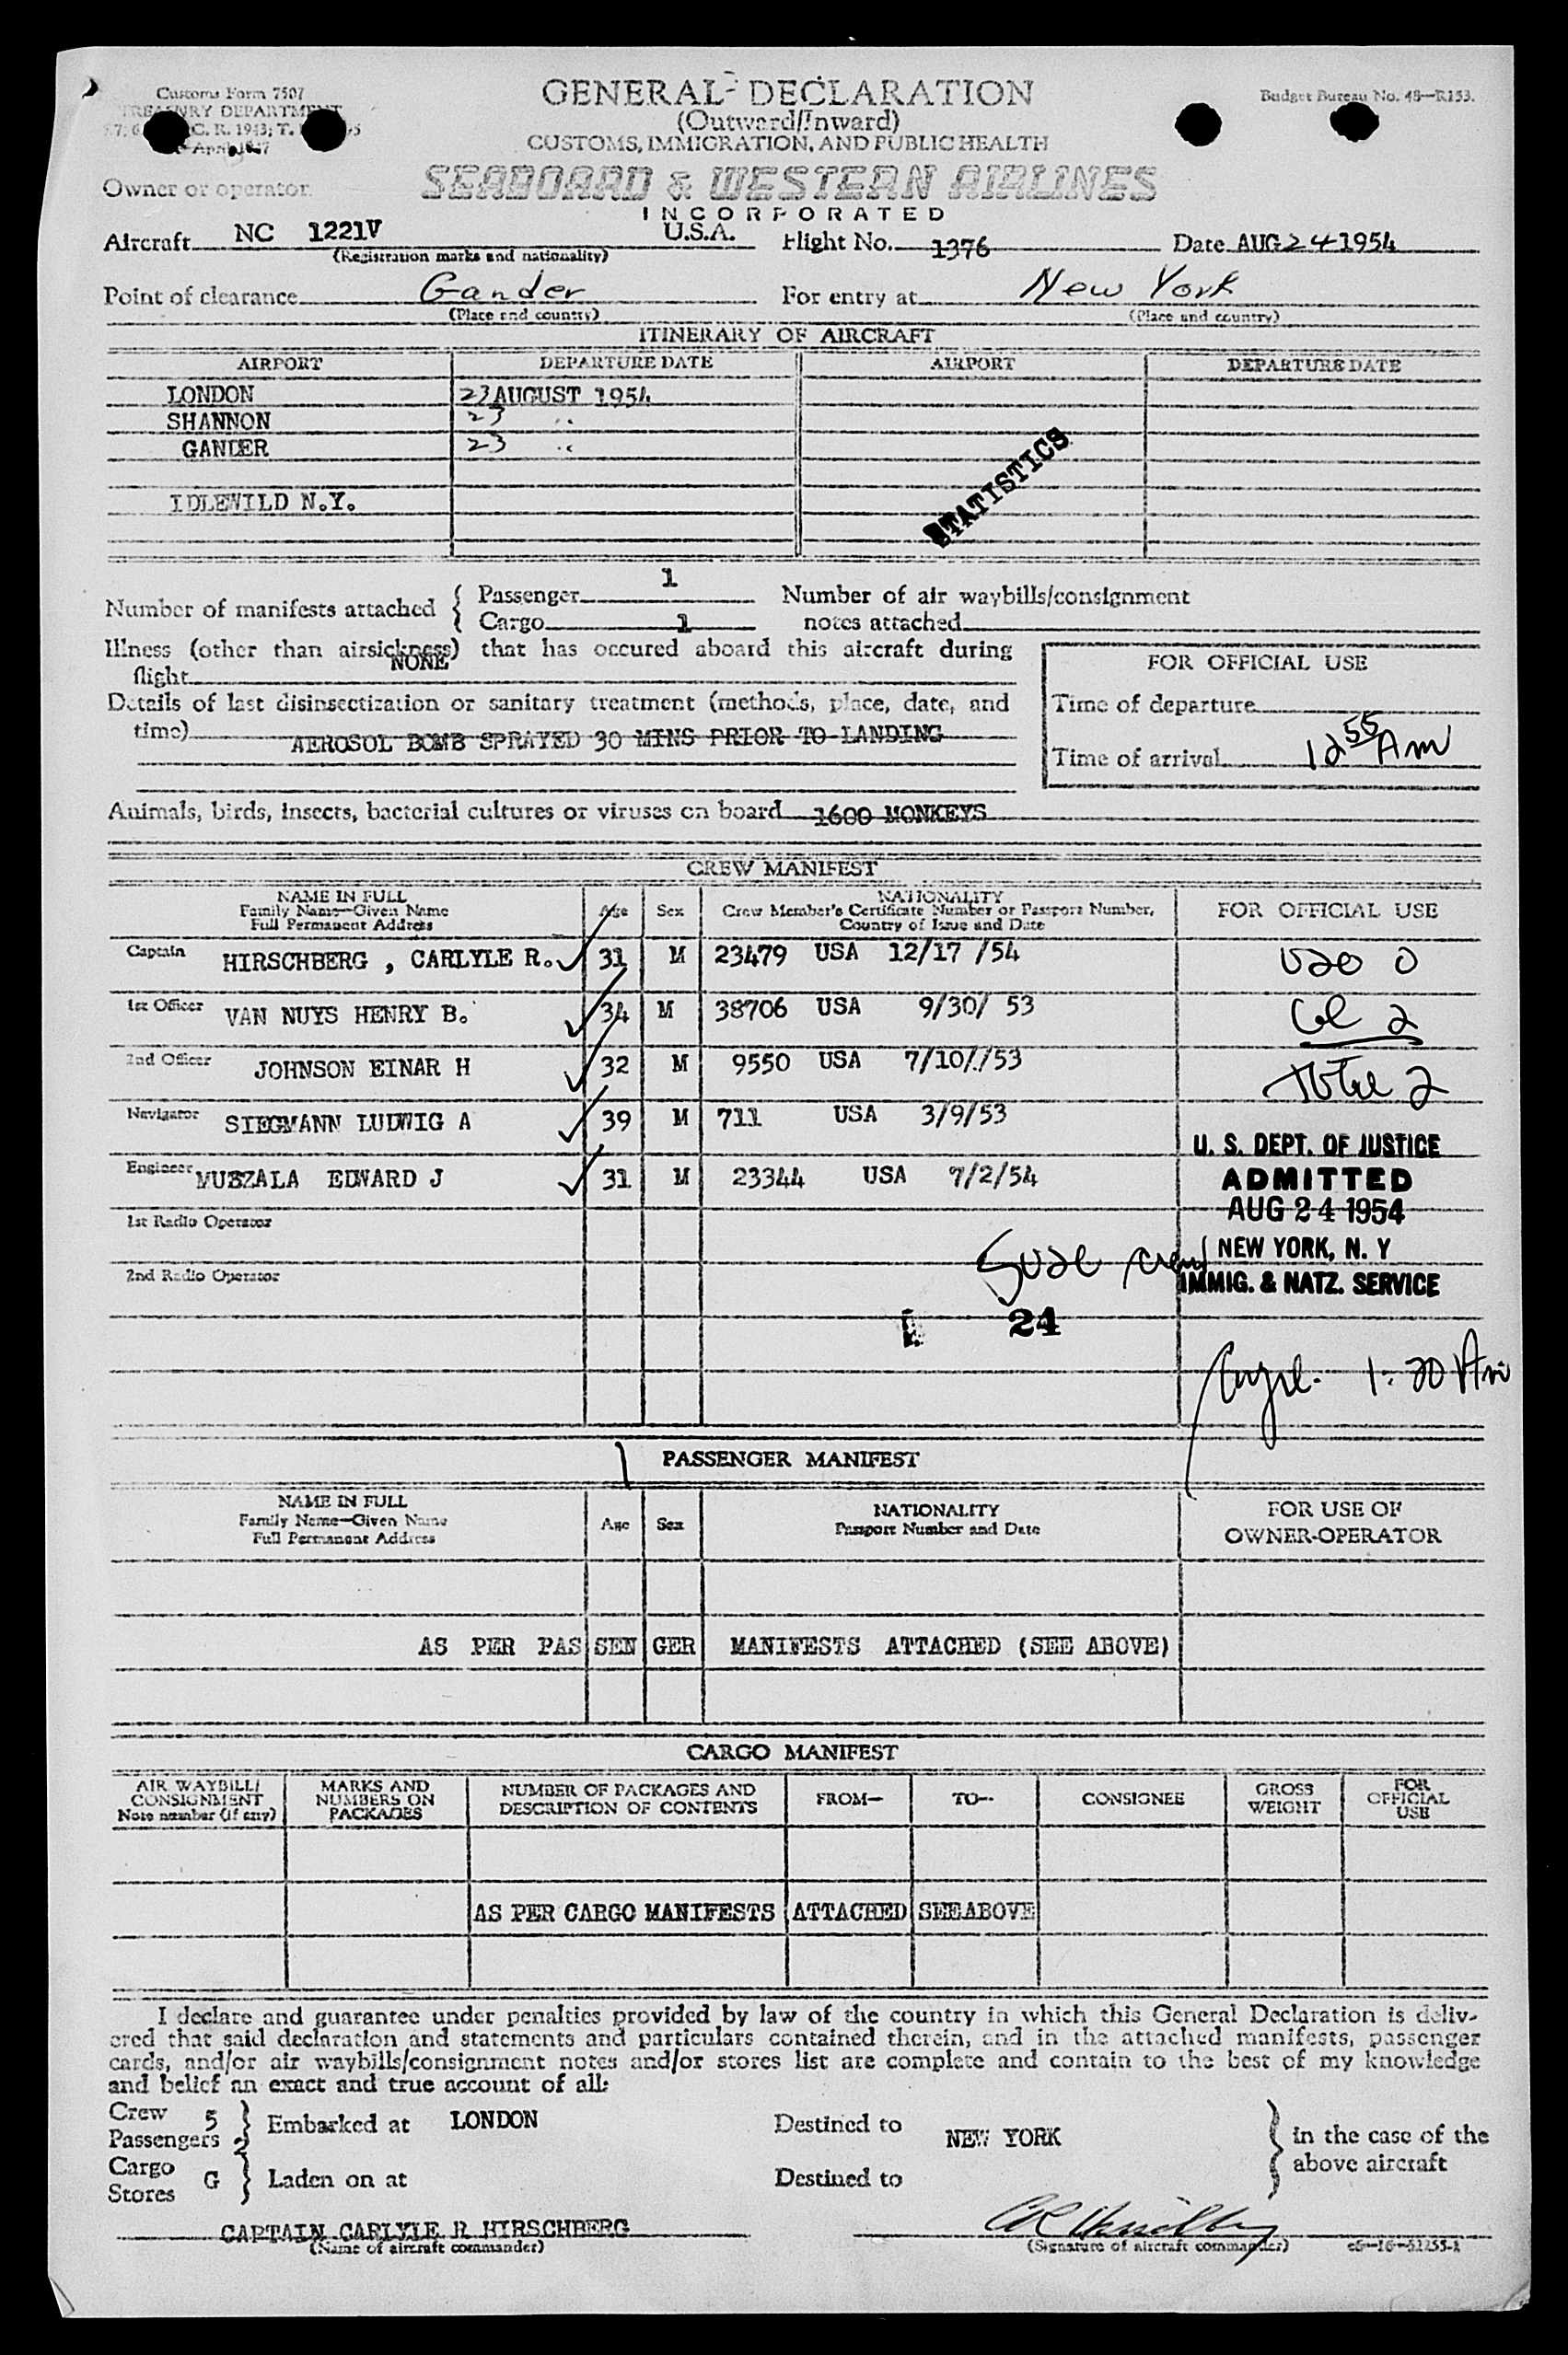 Customs Form 7507
TREASURY DEPARTMENT
C. R. 1943; T.
April 1947
GENERAL DECLARATION
(Outward/Inward)
CUSTOMS, IMMIGRATION, AND PUBLIC HEALTH
Budget Bureau No. 48—R153.
Owner or operator
SEABOARD & WESTERN AIRLINES
INCORPORATED
Aircraft NC 1221V U.S.A. Flight No. 1376 Date AUG 24 1954
(Registration marks and nationality)
Point of clearance Gander For entry at New York
(Place and country) (Place and country)
ITINERARY OF AIRCRAFT
AIRPORT DEPARTURE DATE AIRPORT DEPARTURE DATE
LONDON 23 AUGUST 1954
SHANNON 23 ..
GANDER 23 ..
IDLEWILD N.Y.
STATISTICS
Number of manifests attached { Passenger 1 Number of air waybills/consignment
Cargo 1 notes attached
Illness (other than airsickness) that has occured aboard this aircraft during
flight NONE
FOR OFFICIAL USE
Details of last disinsectization or sanitary treatment (methods, place, date, and
time) AEROSOL BOMB SPRAYED 30 MINS PRIOR TO LANDING
Time of departure
Time of arrival 12 55 Am
Animals, birds, insects, bacterial cultures or viruses on board 1600 MONKEYS
CREW MANIFEST
NAME IN FULL
Family Name—Given Name
Full Permanent Address
Age Sex
NATIONALITY
Crew Member's Certificate Number or Passport Number,
Country of Issue and Date
FOR OFFICIAL USE
Captain HIRSCHBERG , CARLYLE R. 31 M 23479 USA 12/17 /54
1st Officer VAN NUYS HENRY B. 34 M 38706 USA 9/30/ 53
2nd Officer JOHNSON EINAR H 32 M 9550 USA 7/10//53
Total 2
Navigator SIEGMANN LUDWIG A 39 M 711 USA 3/9/53
Engineer MUSZALA EDWARD J 31 M 23344 USA 7/2/54
1st Radio Operator
2nd Radio Operator
U. S. DEPT. OF JUSTICE
ADMITTED
AUG 24 1954
NEW YORK, N. Y
IMMIG. & NATZ. SERVICE
crew
24
1:20 Am
PASSENGER MANIFEST
NAME IN FULL
Family Name—Given Name
Full Permanent Address
Age Sex
NATIONALITY
Passport Number and Date
FOR USE OF
OWNER-OPERATOR
AS PER PAS SEN GER MANIFESTS ATTACHED (SEE ABOVE)
CARGO MANIFEST
AIR WAYBILL/
CONSIGNMENT
Note number (if any)
MARKS AND
NUMBERS ON
PACKAGES
NUMBER OF PACKAGES AND
DESCRIPTION OF CONTENTS
FROM— TO— CONSIGNEE
GROSS
WEIGHT
FOR
OFFICIAL
USE
AS PER CARGO MANIFESTS ATTACHED SEE ABOVE
I declare and guarantee under penalties provided by law of the country in which this General Declaration is deliv-
ered that said declaration and statements and particulars contained therein, and in the attached manifests, passenger
cards, and/or air waybills/consignment notes and/or stores list are complete and contain to the best of my knowledge
and belief an exact and true account of all:
Crew 5 } Embarked at LONDON Destined to NEW YORK } in the case of the
Passengers 2 above aircraft
Cargo G } Laden on at Destined to
Stores
CAPTAIN CARLYLE R HIRSCHBERG
(Name of aircraft commander)
CR Hirschberg
(Signature of aircraft commander) c6—16—51255-1